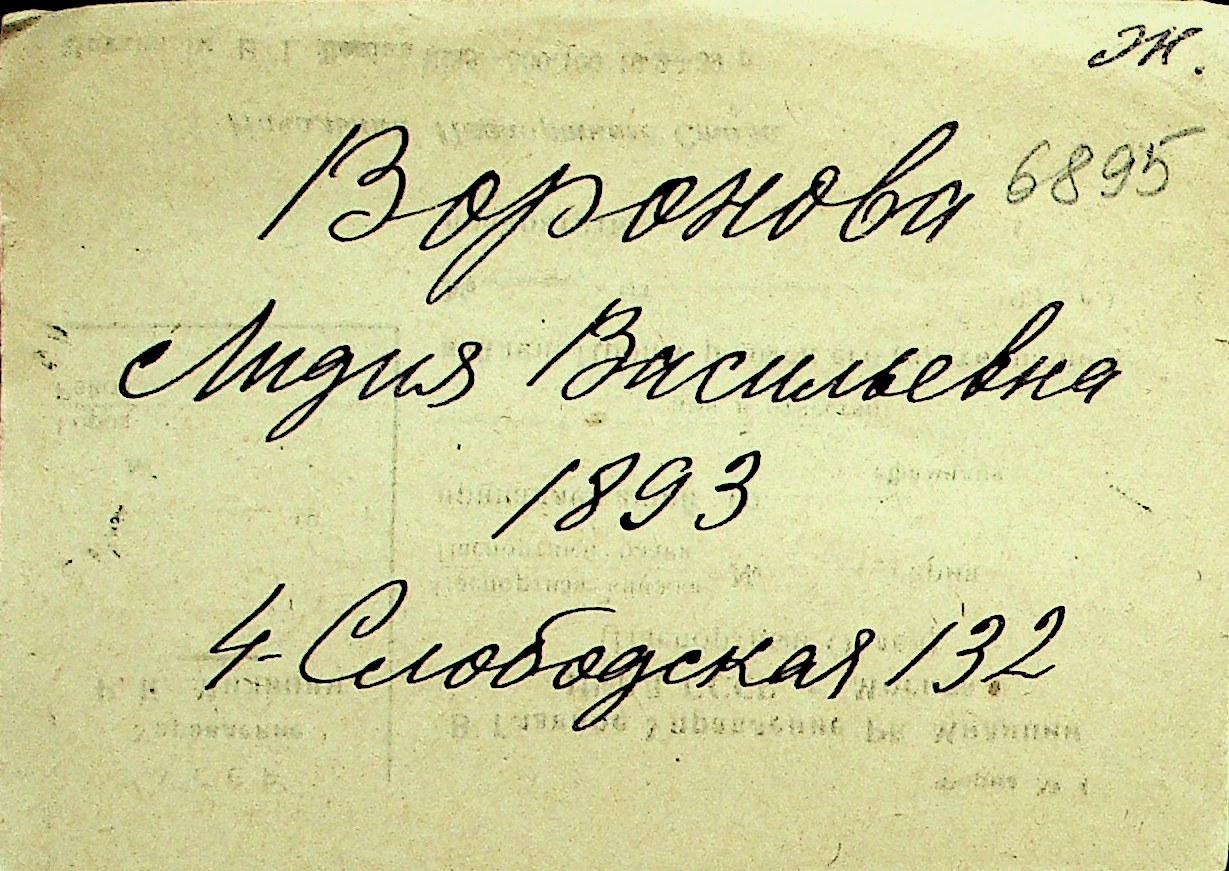 ж.
Воронова 6895
Лидия Васильевна
1893
4-Слободская 132